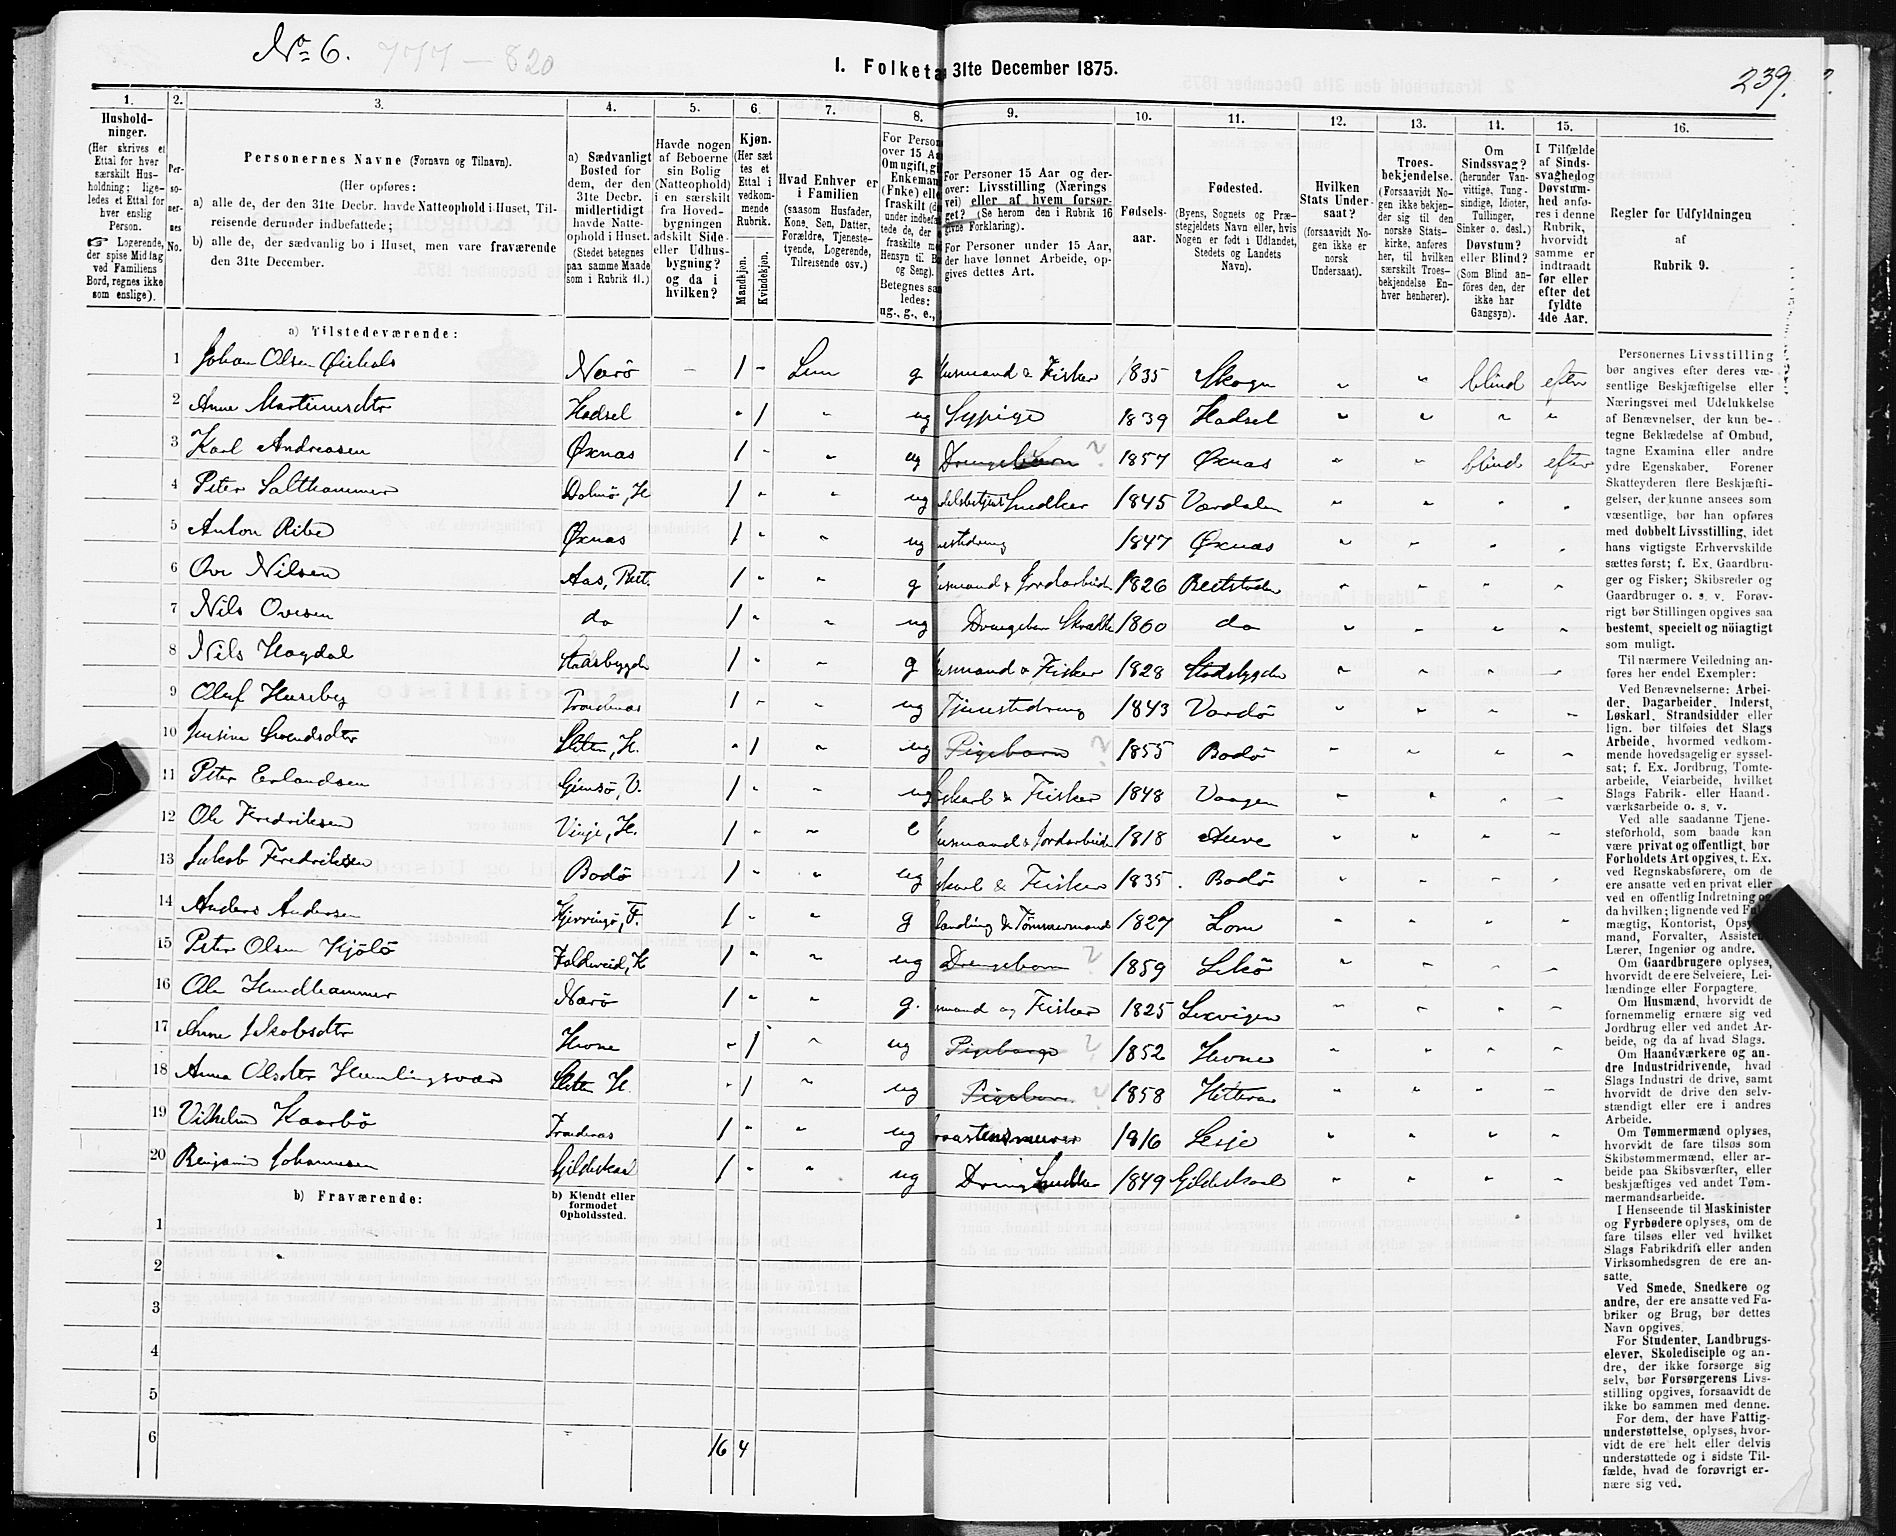 № 6. 777 — 820
I. Folketæ 31te December 1875.
239.
1. 2. 3. 4. 5. 6. 7. 8. 9. 10. 11. 12. 13. 14. 15. 16.
Hushold-
ninger.
(Her skrives et
Ettal for hver
særskilt Hus-
holdning; lige-
ledes et Ettal for
hver enslig
Person.
☞ Logerende,
der spise Middag
ved Familiens
Bord, regnes ikke
som enslige).
Per-
so-
ner-
nes
No.
Personernes Navne (Fornavn og Tilnavn).
(Her opføres:
a) alle de, der den 31te Decbr. havde Natteophold i Huset, Til-
reisende derunder indbefattede;
b) alle de, der sædvanlig bo i Huset, men vare fraværende
den 31te December.
a) Sædvanligt
Bosted for
dem, der den
31te Decbr.
midlertidigt
havde Natte-
ophold i Huset.
(Stedet betegnes
paa samme Maade
som i Rubrik 11.)
Havde nogen
af Beboerne
sin Bolig
(Natteophold)
i en særskilt
fra Hoved-
bygningen
adskilt Side-
eller Udhus-
bygning?
og da i
hvilken?
Kjøn.
(Her sæt-
tes et
Ettal i
vedkom-
mende
Rubrik.
Mandkjøn.
Kvindekjøn.
Hvad Enhver er
i Familien
(saasom Husfader,
Kone, Søn, Datter,
Forældre, Tjeneste-
tyende, Logerende,
Tilreisende osv.)
For Person
over 15 Aa
Om ugift, gi
Enkeman
(Enke) elle
fraskilt (d
under indbefa
tede de, der
fraskilte m
Hensyn til Bo
og Seng).
Betegnes saa
ledes:
ug., g., e.,
For Personer 15 Aar og der-
over: Livsstilling (Nærings
vei) eller af hvem forsør-
get? (Se herom den i Rubrik 16
givne Forklaring).
For Personer under 15 Aar,
der have lønnet Arbeide, op-
gives dettes Art.
Fødsels-
aar.
Fødested.
(Byens, Sognets og Præ-
stegjeldets Navn eller, hvis
Nogen er født i Udlandet,
Stedets og Landets
Navn).
Hvilken
Stats Under-
saat?
(forsaavidt No-
gen ikke er
norsk
Undersaat).
Troes-
bekjendelse.
(Forsaavidt No-
gen ikke bekjen-
der sig til den
norske Stats-
kirke, anføres
her, til hvilken
særskilt Troes-
bekjendelse En-
hver henhører).
Om
Sindssvag?
(herunder Van-
vittige, Tung-
sindige, Idioter,
Tullinger,
Sinker o. desl.)
Døvstum?
eller Blind?
(Som Blind an-
føres den, der
ikke har
Gangsyn).
I Tilfælde
af Sinds-
svaghed og
Døvstum-
hed anfø-
res i denne
Rubrik,
hvorvidt
samme er
indtraadt
før eller
efter det
fyldte
4de Aar.
Regler for Udfyldningen
af
Rubrik 9.
a) Tilstedeværende:
1 Johan Olsen Nærö - 1 - g Husmand & Fisker 1835 Skogn " " blind efter
2 Anne Martinusdtr Hadsel " 1 " ug Sypige 1839 Hadsel " " " "
3 Karl Andreasen Øxnæs 1 " " ug Drengebarn ? 1857 Øxnæs " " blind efter
4 Peter Salthammer 1 " " ug Snedker 1845 Værdalen " " " "
5 Anton Ribe Øxnæs 1 " " ug 1847 Øxnæs " " " "
6 Ove Nilsen Aas, Beit. 1 " " g Husmand & Jordarbeider 1826 Beitstaden " " " "
7 Nils Ovesen do 1 " " ug 1860 do " " " "
8 Nils Hagdal Stadsbygd 1 " " g Husmand & Fisker 1828 Stadsbygden " " " "
9 Oluf Huseby Trondenæs 1 " " ug Tjenestedreng 1843 Vardö " " " "
10 Jensine Svendsdtr Sletten, H. " 1 " ug Pigebarn ? 1855 Bodö " " " "
11 Peter Erlandsen Gimsö, V. 1 " " ug & Fisker 1848 Vaagen " " " "
12 Ole Fredriksen Vinje, H. 1 " " e Husmand & Jordarbeider 1818 Aure " " " "
13 Jakob Fredriksen Bodö 1 " " ug & Fisker 1835 Bodö " " " "
14 Anders Andersen Kjerringö, F. 1 " " g & Tømmermand 1827 Lom " " " "
15 Peter Olsen Kjölö Foldereid, K 1 " " ug Drengebarn ? 1859 Lekö " " " "
16 Ole Hundhammer Nærö 1 " " g. Husmand og Fisker 1825 Lexvigen " " " "
17 Anne Jakobsdtr Hevne " 1 " ug Pigebarn ? 1852 Hevne " " " "
18 Anna Olsdtr Humlingsvær Sletten H. " 1 " ug Pigebarn ? 1858 Hitteren " " " "
19 Vilhelm Kaarbö Trondenæs 1 " " ug 1816 Lesje " " " "
20 Benjamin Johannesen Gildeskaal 1 " " ug Dreng Snedker 1849 Gildeskaal " " " "
b) Fraværende:
b) Kjendt eller
formodet
Opholdssted.
1
2
3
4
5
6
16 4
Personernes Livsstilling
bør angives efter deres væ-
sentlige Beskjæftigelse eller
Næringsvei med Udelukkelse
af Benævnelser, der kun be-
tegne Beklædelse af Ombud,
tagne Examina eller andre
ydre Egenskaber. Forener
Skatteyderen flere Beskjæfti-
gelser, der kunne ansees som
væsentlige, bør han opføres
med dobbelt Livsstilling, idet
hans vigtigste Erhvervskilde
sættes først; f. Ex. Gaardbru-
ger og Fisker; Skibsreder og
Gaardbruger o. s. v. Forøv-
rigt bør Stillingen opgives saa
bestemt, specielt og nöiagtigt
som muligt.
Til nærmere Veiledning an-
føres her endel Exempler:
Ved Benævnelserne: Arbei-
der, Dagarbeider, Inderst,
Løskarl, Strandsidder eller
lign. bør tilføies det Slags
Arbeide, hvormed vedkom-
mende hovedsagelig er syssel-
sat; f. Ex. Jordbrug, Tomte-
arbeide, Veiarbeide, hvilket
Slags Fabrik- eller Haand-
værksarbeide o. s. v.
Ved alle saadanne Tjene-
steforhold, som baade kan
være privat og offentligt, bør
Forholdets Art opgives, t. Ex.
ved Regnskabsførere, om de
ere ansatte ved en privat eller
ved en offentlig Indretning og
da hvilken; lignende ved Ful-
mægtig, Kontorist, Opsyns-
mand, Forvalter, Assistent,
Lærer, Ingeniør og andre.
Om Gaardbrugere oplyses,
hvorvidt de ere Selveiere, Lei-
lændinge eller Forpagtere.
Om Husmænd, hvorvidt de
fornemmelig ernære sig ved
Jordbrug eller ved andet Ar-
beide, og da af hvad Slags.
Om Haandværkere og an-
dre Industridrivende, hvad
Slags Industri de drive, samt
hvorvidt de drive den selv-
stændigt eller ere i andres
Arbeide.
Om Tømmermænd oplyses,
hvorvidt de fare tilsøs som
Skibstømmermænd, eller ar-
beide paa Skibsværfter, eller
beskjæftiges ved andet Tøm-
mermandsarbeide.
I Henseende til Maskinister
og Fyrbødere oplyses, om de
fare tilsøs eller ved hvilket
Slags Fabrikdrift eller anden
Virksomhedsgren de ere an-
satte.
Ved Smede, Snedkere og
andre, der ere ansatte ved Fa-
briker og Brug, bør dettes
Navn opgives.
For Studenter, Landbrugs-
elever, Skoledisciple og an-
dre, der ikke forsørge sig
selv, bør Forsørgerens Livs-
stilling opgives, forsaavidt de
ikke bo sammen med denne.
For dem, der have Fattig-
understøttelse, oplyses, hvor-
vidt de ere helt eller delvis
understøttede og i sidste Til-
fælde, hvad de forøvrigt er-
nære sig ved.